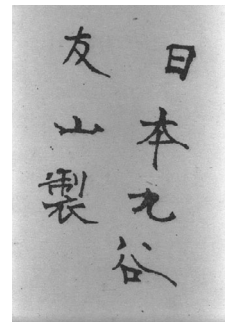 日本九谷
友山製